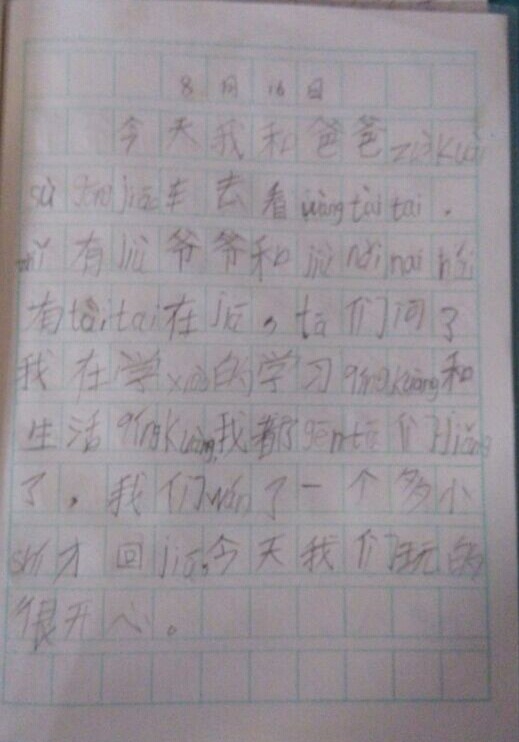 8月16日
今天我和爸爸zuò kuài
sù gōng jiāo车去看wàng tài tai.
有jiù爷爷和jiù nǎi nai hái
有tài tai在jiā，tā们问了
我在学xiào的学习qíng kuàng和
生活qíng kuàng,我都gēn tā们jiǎng
了，我们wán了一个多小
shí才回jiā,今天我们玩的
很开心。